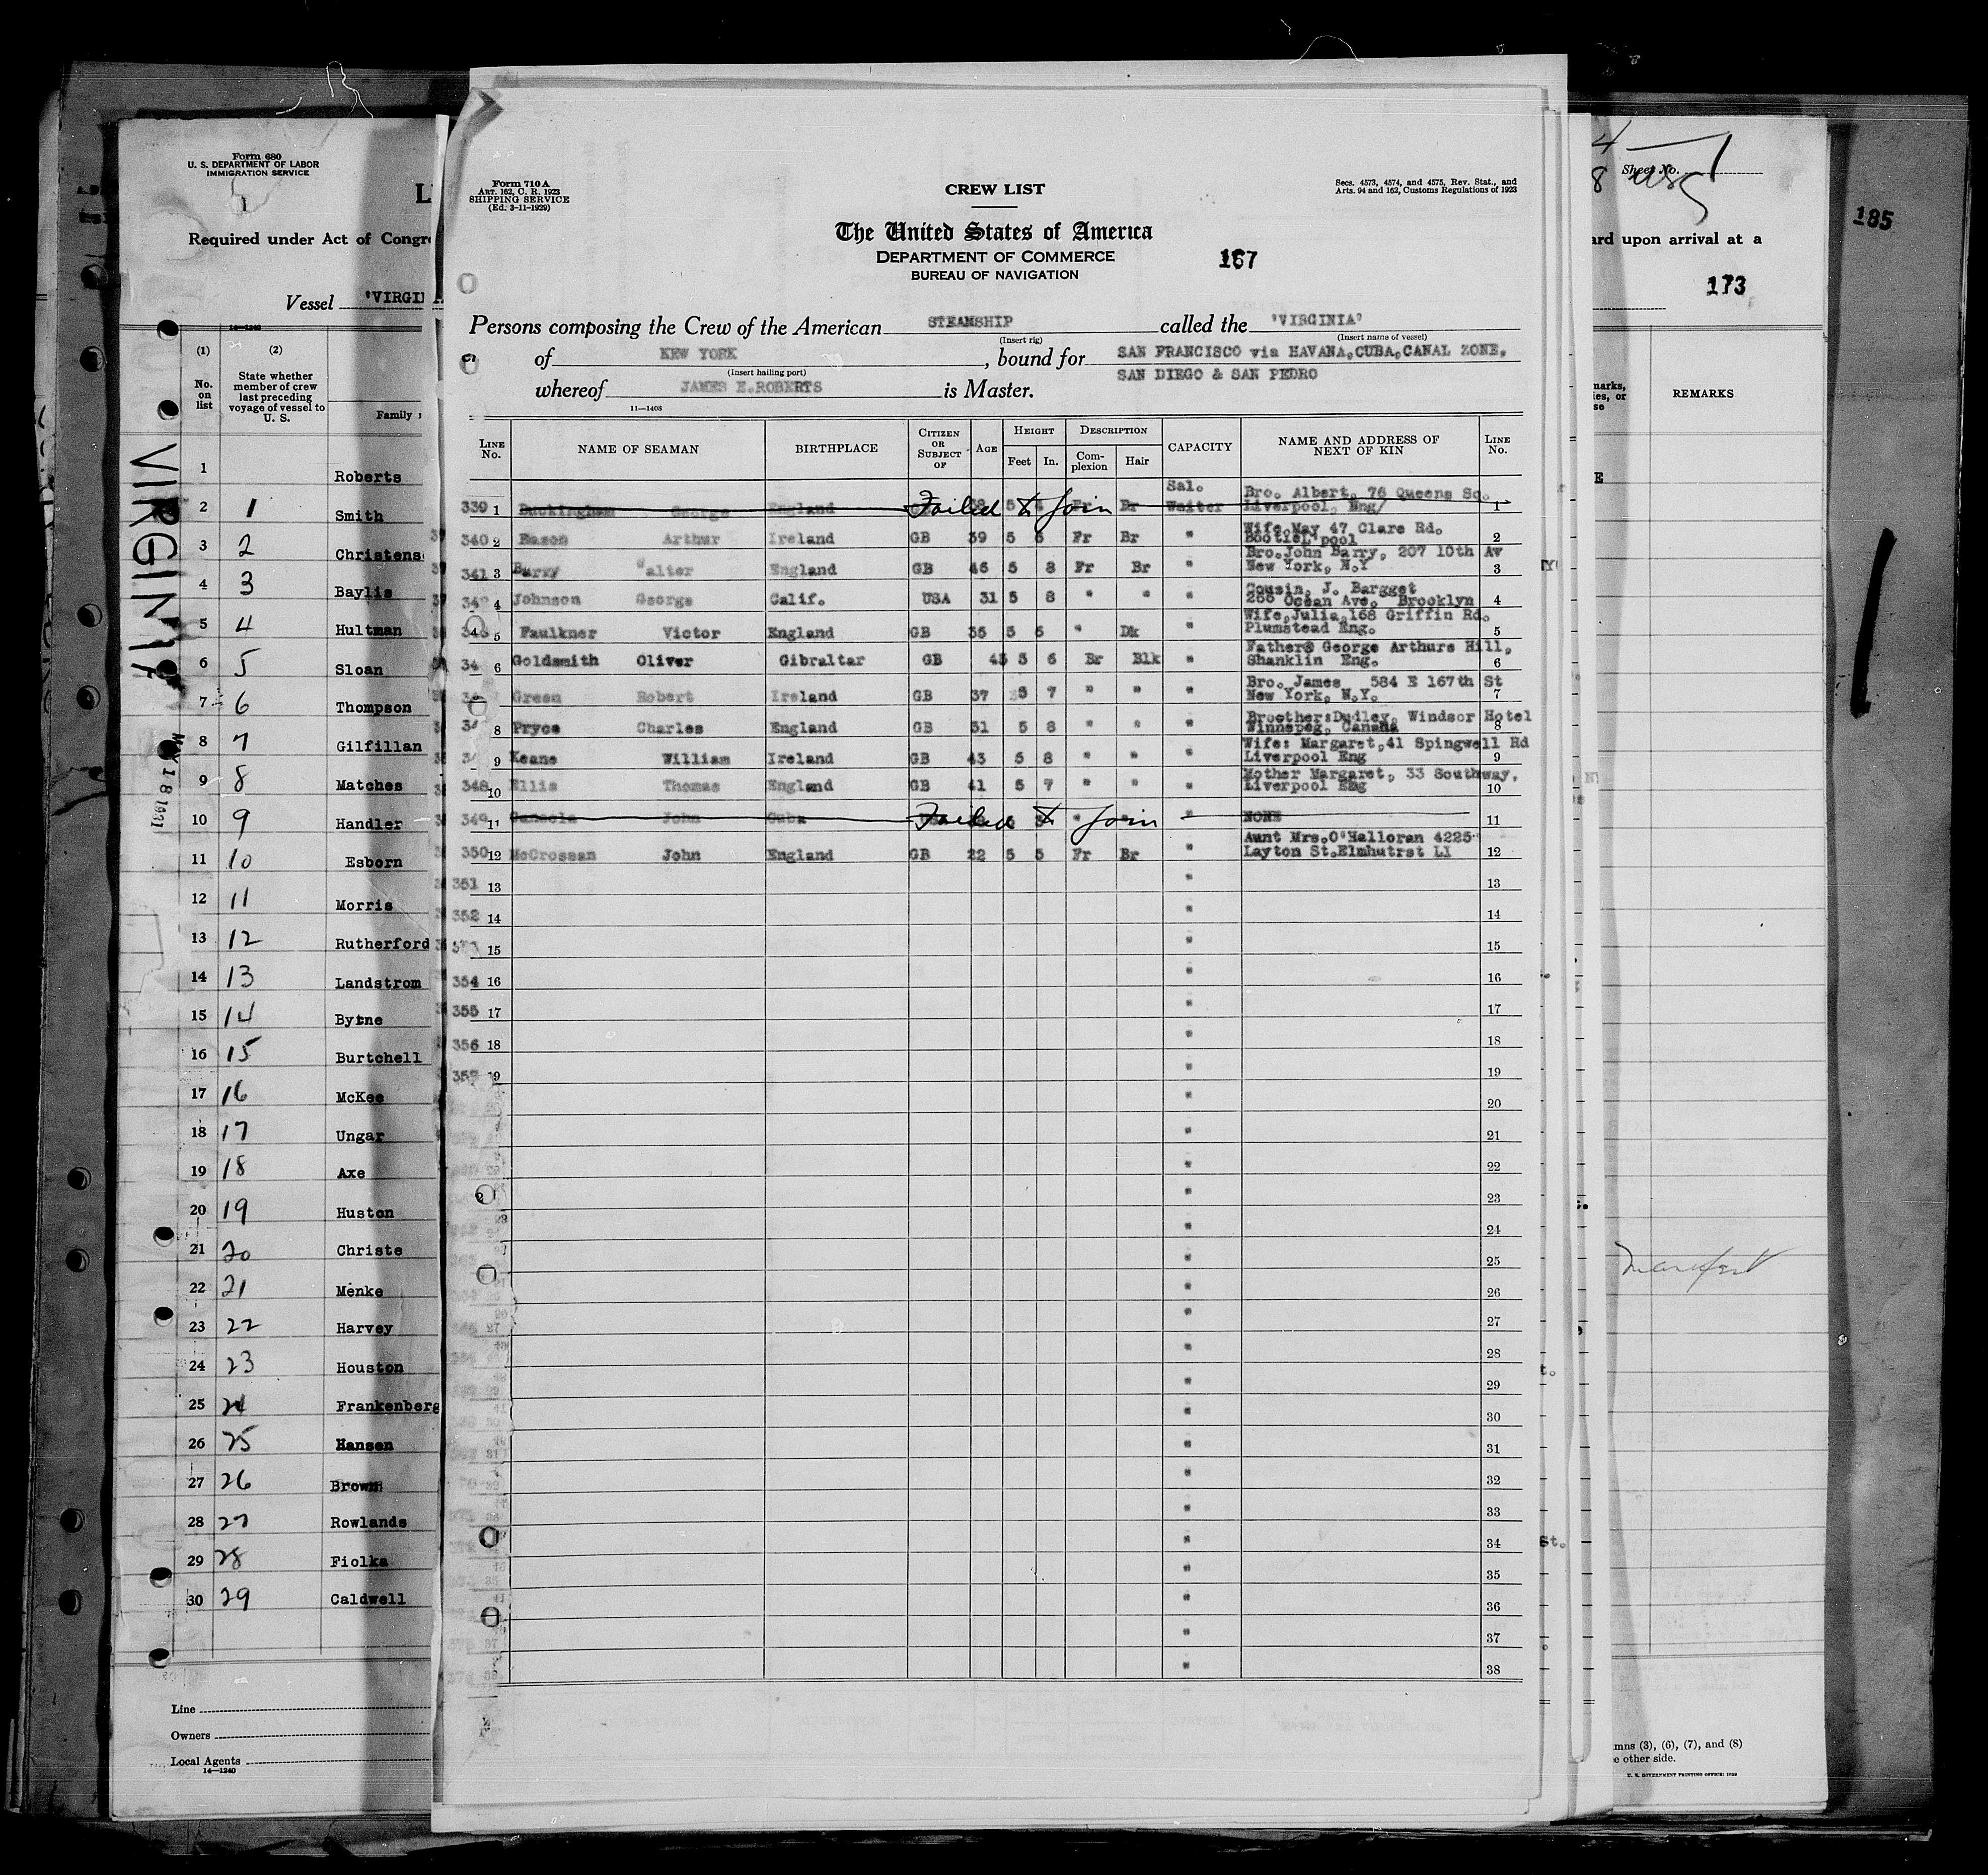 Form 680
U. S. DEPARTMENT OF LABOR
IMMIGRATION SERVICE
Required under Act of Congre
Vessel 'VIRGINIA
14—1240
(1) (2)
No. on list
State whether member of crew last preceding voyage of vessel to U. S.
Family
VIRGINIA
1 Roberts
2 1 Smith
3 2 Christens
4 3 Baylis
5 4 Hultman
6 5 Sloan
7 6 Thompson
8 7 Gilfillan
9 8 Matches
10 9 Handler
11 10 Esborn
12 11 Morris
13 12 Rutherford
14 13 Landstrom
15 14 Byrne
16 15 Burtchell
17 16 McKee
18 17 Ungar
19 18 Axe
20 19 Huston
21 20 Christe
22 21 Menke
23 22 Harvey
24 23 Houston
25 24 Frankenberg
26 25 Hansen
27 26 Brown
28 27 Rowlands
29 28 Fiolka
30 29 Caldwell
Line
Owners
Local Agents
14—1240
Form 710A
ART. 162, C. R. 1923
SHIPPING SERVICE
(Ed. 3-11-1929)
CREW LIST
Secs. 4573, 4574, and 4575, Rev. Stat., and
Arts. 94 and 162, Customs Regulations of 1923
The United States of America
DEPARTMENT OF COMMERCE
BUREAU OF NAVIGATION
167
Persons composing the Crew of the American STEAMSHIP called the 'VIRGINIA'
(Insert rig) (Insert name of vessel)
of NEW YORK, bound for SAN FRANCISCO via HAVANA,CUBA,CANAL ZONE,
(Insert hailing port) SAN DIEGO & SAN PEDRO
whereof JAMES E.ROBERTS is Master.
11—1408
LINE No. NAME OF SEAMAN BIRTHPLACE CITIZEN OR SUBJECT OF AGE HEIGHT Feet In. DESCRIPTION Complexion Hair CAPACITY NAME AND ADDRESS OF NEXT OF KIN LINE No.
Sal. Bro. Albert, 76 Queens Sq.
339 1 Buckingham George England Failed to join Br Waiter Liverpool, Eng/ 1
Wife,May 47 Clare Rd.
340 2 Eason Arthur Ireland GB 39 5 6 Fr Br " BootleL'pool 2
Bro.John Barry, 207 10th Av
341 3 Barry Walter England GB 46 5 8 Fr Br " New York, N.Y 3
Cousin, J. Bargget
342 4 Johnson George Calif. USA 31 5 8 " " " 266 Ocean Ave. Brooklyn 4
Wife,Julia,168 Griffin Rd.
343 5 Faulkner Victor England GB 35 5 6 " Dk " Plumstead Eng. 5
Father George Arthurs Hill,
34 6 Goldsmith Oliver Gibraltar GB 43 5 6 Br Blk " Shanklin Eng. 6
Bro. James 584 E 167th St
Green Robert Ireland GB 37 5 7 " " " New York, N.Y. 7
Broother:Dudley, Windsor Hotel
34 8 Pryce Charles England GB 51 5 8 " " " Winnepeg, Canada 8
Wife: Margaret,41 Spingwell Rd
9 Keane William Ireland GB 43 5 8 " " " Liverpool Eng 9
Mother Margaret, 33 Southway,
348 10 Ellis Thomas England GB 41 5 7 " " " Liverpool Eng 10
349 11 John Cuba Failed to join " NONE 11
Aunt Mrs.O'Halloran 4225
350 12 McCrossan John England GB 22 5 5 Fr Br " Layton St.Elmhutrst LI 12
351 13 " 13
352 14 " 14
15 " 15
354 16 " 16
355 17 " 17
356 18 " 18
19 " 19
" 20
" 21
" 22
" 23
" 24
" 25
" 26
" 27
" 28
" 29
" 30
" 31
" 32
" 33
" 34
" 35
" 36
" 37
" 38
Sheet No.
ard upon arrival at a
173
185
REMARKS
mns (3), (6), (7), and (8)
e other side.
U. S. GOVERNMENT PRINTING OFFICE: 1929